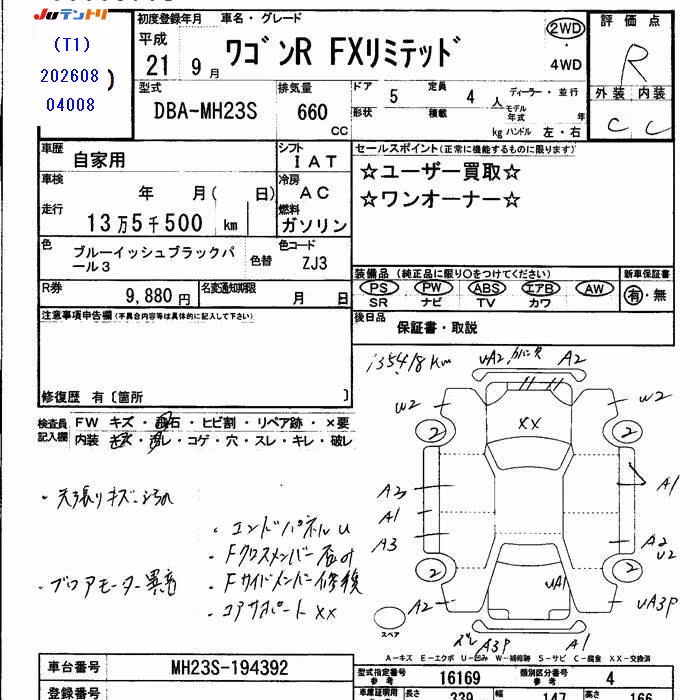 Juテントリ
(T1)
202608
04008
初度登録年月 車名・グレード
平成
21 9月 ワゴンR FXリミテッド
2WD
4WD
評価点
R
外装 内装
C C
型式
DBA-MH23S
排気量
660
CC
ドア 5 定員 4 人
形状 積載 kg
ディーラー・並行
モデル年式 年
ハンドル 左・右
車歴
自家用
シフト
IAT
車検
年 月( 日)
冷房
AC
走行
13万5千500 km
燃料
ガソリン
色
ブルーイッシュブラックパール3
色替
色コード
ZJ3
R券
9,880円
名変通知期限
月 日
セールスポイント(正常に機能するものに限ります)
☆ユーザー買取☆
☆ワンオーナー☆
装備品 (純正品に限り○をつけてください)
PS PW ABS エアB AW
SR ナビ TV カワ
新車保証書
有・無
後日品
保証書・取説
注意事項申告欄(不具合内容等は具体的に記入して下さい)
修復歴 有〔箇所 〕
検査員記入欄
FW キズ・飛石・ヒビ割・リペア跡・×要
内装 キズ・汚レ・コゲ・穴・スレ・キレ・破レ
135418km
UA2 A2
W2 W2
XX
2 2
A2 A1
A1
A3 A2
U2
2 2
UA1
A2 UA3P
ズレ A3P A1
スペア
・天張りキズ・汚れ
・エンドパネルU
・Fクロスメンバー
・ブロアモーター異音
・Fサイドメンバー修復
・コアサポートXX
A-キズ E-エクボ U-凹み W-補修跡 S-サビ C-腐食 XX-交換済
車台番号
MH23S-194392
型式指定番号
参考
16169
類別区分番号
参考
4
登録番号
車庫証明用
長さ 339 幅 147 高さ 166